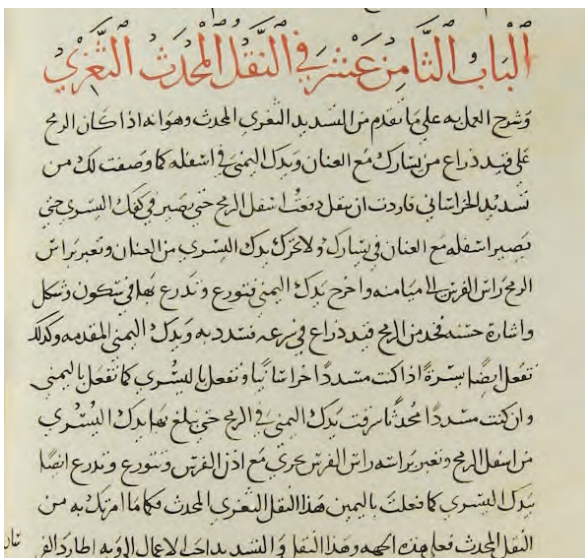 الباب الثامن عشر في النقل المحدث الثغري
وشرح العمل به على ما تقدم من التسديد الثغري المحدث وهو انه اذا كان الرمح
على قيد ذراع من يسارك مع العنان ويدك اليمنى في اسفله كما وصفت لك من
تسديد الخراساني فاردت ان تنقل دفعت اسفل الرمح حتى يصير في كفك اليسرى حتى
يصير اسفله مع العنان في يسارك ولا تحرك يدك اليسرى من العنان وتعبر براس
الرمح راس الفرس الى ميامنه واخرج يدك اليمنى وتدرع بها في سكون وشكل
واشارة حسنه فخذ من الرمح قيد ذراع في سرعه فسدد به ويدك اليمنى المقدمه وكذلك
تفعل ايضا يسرة اذا كنت مسددا خراسانيا وتفعل باليسرى كما تفعل باليمنى
وان كنت مسددا محدثا سرقت يدك اليمنى في الرمح حتى يبلغ بها يدك اليسرى
من اسفل الرمح وتعبر براسه راس الفرس يجري مع اذن الفرس وتدرع ايضا
يدك اليسرى كما فعلت باليمين هذا النقل الثغري المحدث فكلما امرتك به من
النقل المحدث فعلى هذه الجهه وهذا النقل و التسديد احب الاعمال